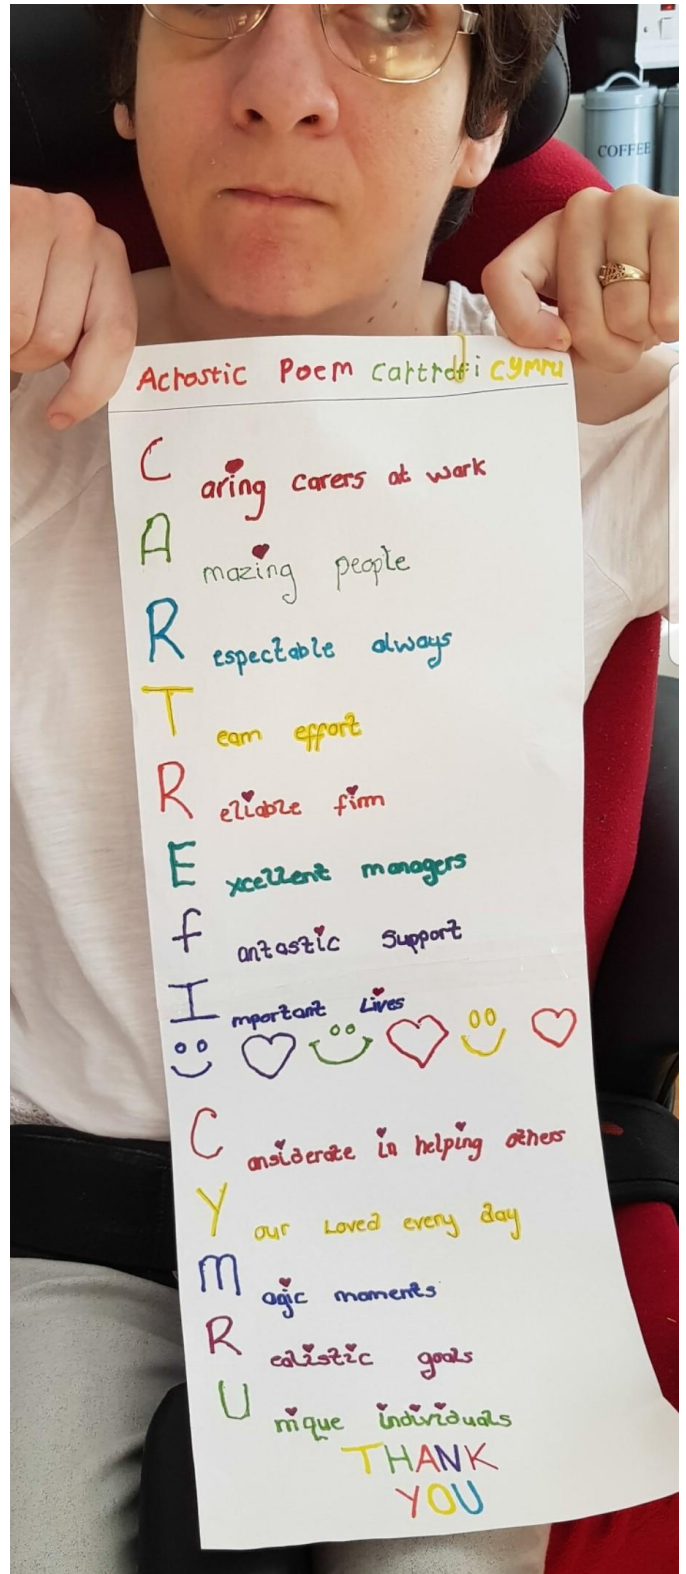 COFFEE
Acrostic Poem cartrefi cymru
Caring carers at work
Amazing people
Respectable always
Team effort
Reliable firm
Excellent managers
fantastic Support
Important Lives
Cansiderate in helping others
Your Loved every day
magic moments
Realistic goals
Unique individuals
THANK
YOU